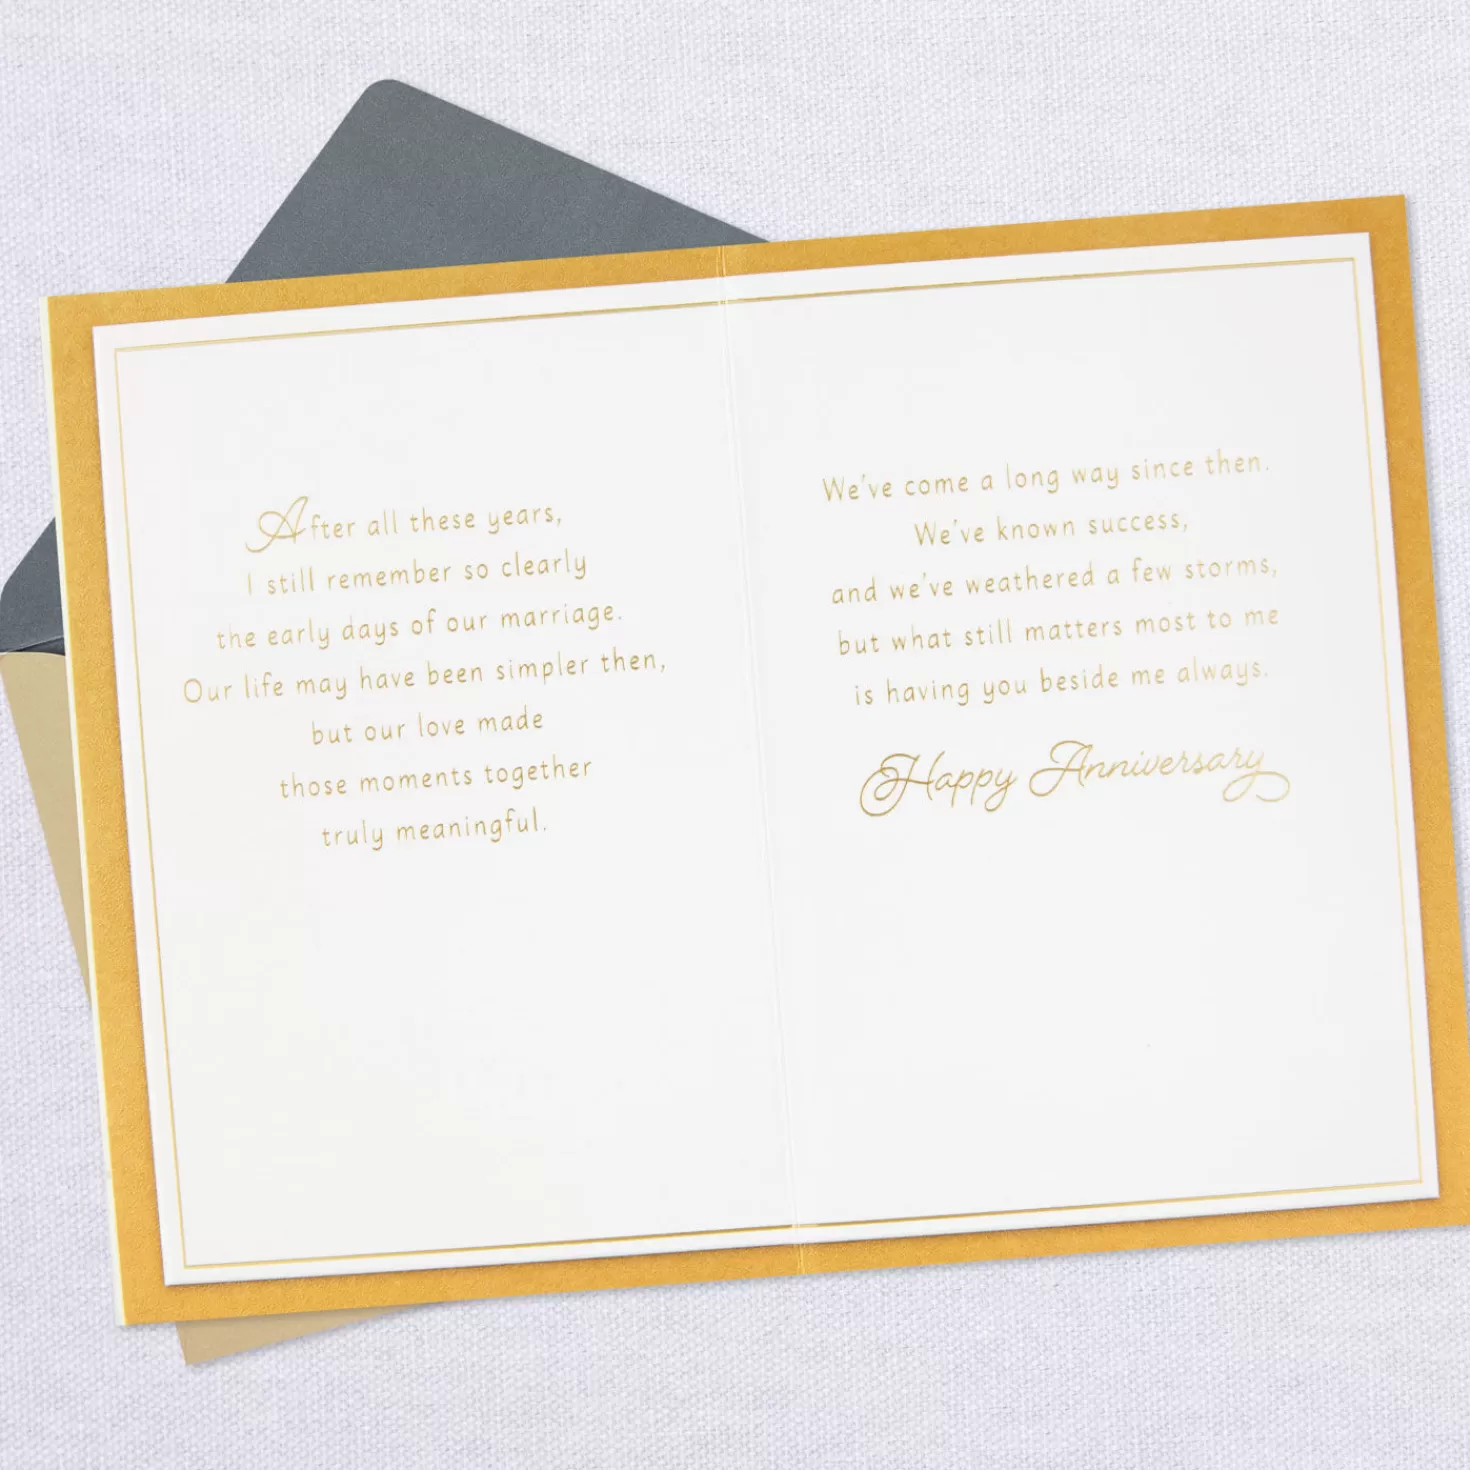 After all these years,
I still remember so clearly
the early days of our marriage.
Our life may have been simpler then,
but our love made
those moments together
truly meaningful.
We've come a long way since then.
We've known success,
and we've weathered a few storms,
but what still matters most to me
is having you beside me always.
Happy Anniversary